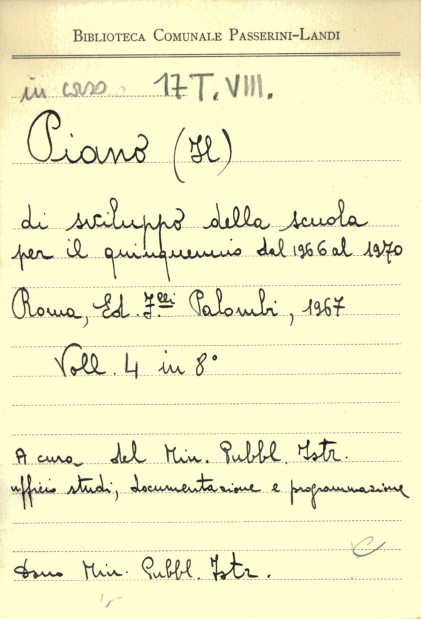 BIBLIOTECA COMUNALE PASSERINI-LANDI
in corso. 17 T. VIII.
Piano (Il)
di sviluppo della scuola
per il quinquennio dal 1966 al 1970
Roma, Ed. F.lli Palombi, 1967
Voll. 4 in 8°
A cura del Min. Pubbl. Istr.
ufficio studi, documentazione e programmazione
Dono Min. Pubbl. Istr.